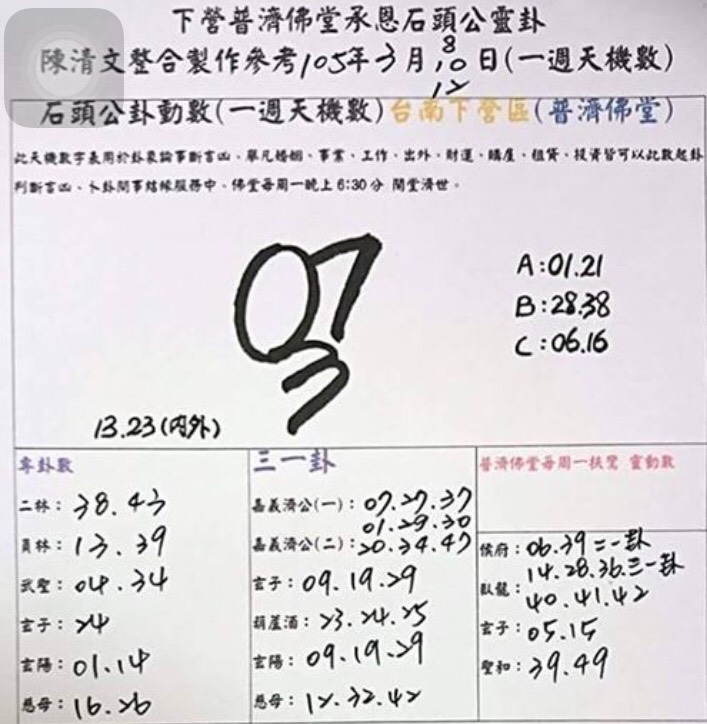 下營普濟佛堂承恩石頭公靈卦
陳清文整合製作參考105年3月8.10.12日(一週天機數)
石頭公卦動數(一週天機數)台南下營區(普濟佛堂)
此天機數字表用於卦象論事斷吉凶、舉凡婚姻、事業、工作、出外、財運、購屋、租賃、投資皆可以此數起卦
判斷吉凶、卜卦問事結緣服務中、佛堂每周一晚上6:30分 開堂濟世。
07
3
A:01.21
B:28.38
C:06.16
13.23(內外)
專卦數
二林:38.43
員林:13.39
武聖:04.34
玄子:24
玄陽:01.14
慈母:16.26
三一卦
嘉義濟公(一):07.27.37
01.29.30
嘉義濟公(二):20.34.47
玄子:09.19.29
葫蘆酒:23.24.25
玄陽:09.19.29
慈母:12.32.42
普濟佛堂每周一扶鸞 靈動數
侯府:06.39二一卦
14.28.36.三一卦
臥龍:40.41.42
玄子:05.15
聖和:39.49